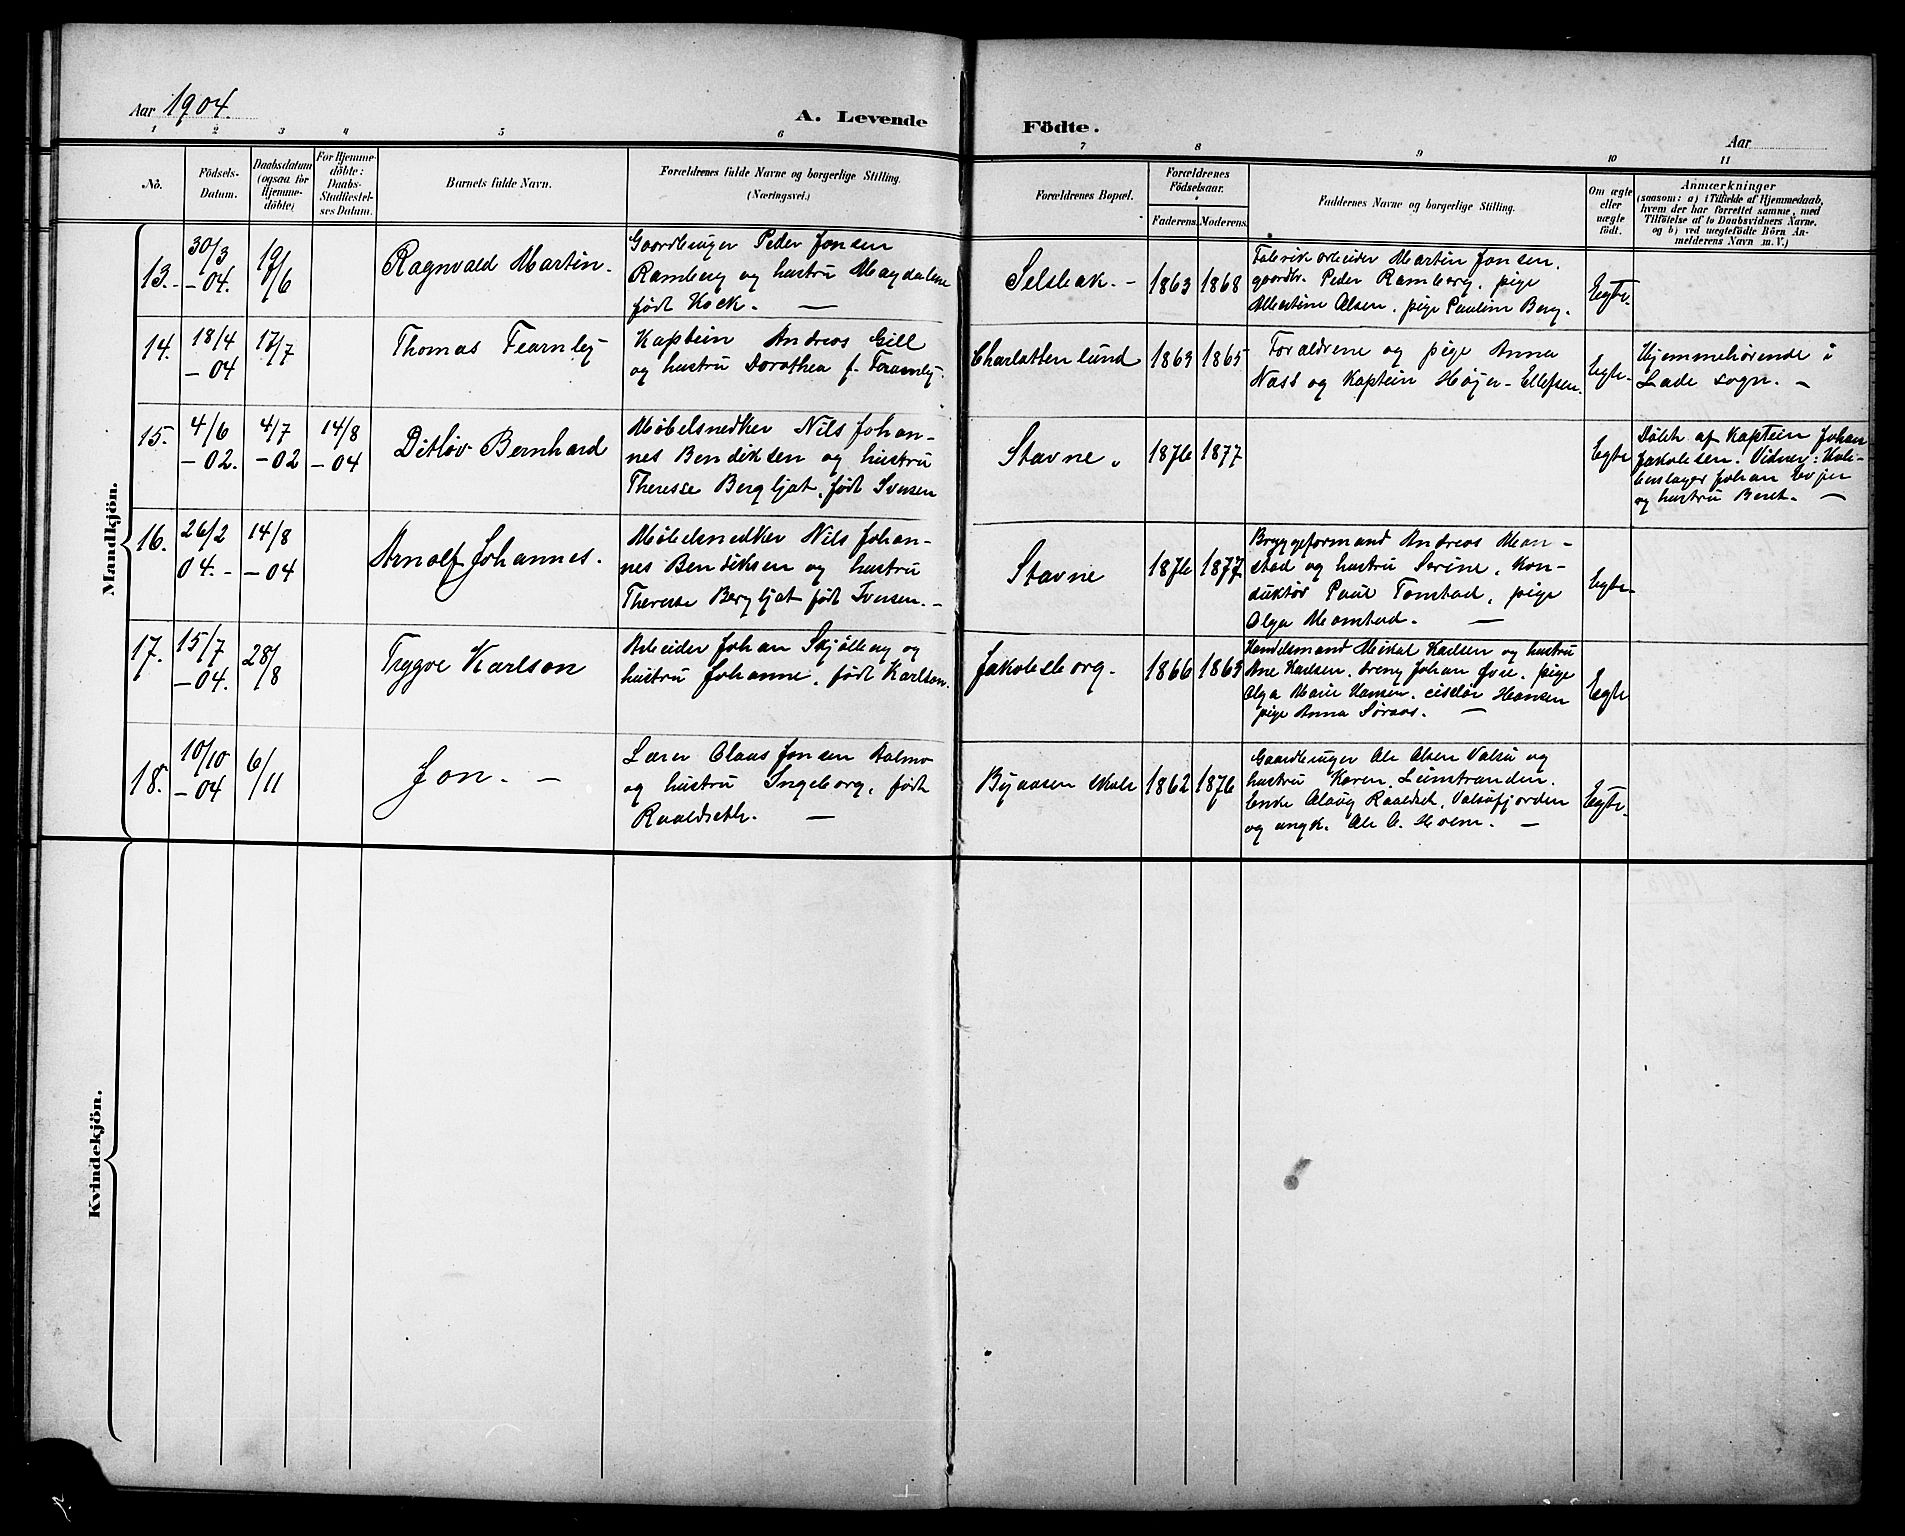 Aar 1904.
A. Levende Födte.
Aar
1 2 3 4 5 6 7 8 9 10 11
No.
Födsels-Datum.
Daabsdatum (ogsaa for Hjemme-döbte)
For Hjemme-döbte: Daabs-Stadfæstel-ses Datum.
Barnets fulde Navn.
Forældrenes fulde Navne og borgerlige Stilling.
(Næringsvei.)
Forældrenes Bopæl.
Forældrenes Födselsaar.
Faderens. Moderens.
Faddernes Navne og borgerlige Stilling.
Om ægte eller uægte födt.
Anmærkninger
(saasom: a) i Tilfælde af Hjemmedaab,
hvem der har forrettet samme, med
Tilföielse af to Daabsvidners Navne.
og b) ved uægtefödte Börn An-
melderens Navn m. V.)
Mandkjön.
13. 30/3 -04. 19/6 Ragnvald Martin.
Gaardbruger Peder Jonsen
Ramberg og hustru Magdalene
født Kock. —
Selsbak. - 1863 1868
Fabrikarbeider Martin Jonsen,
gaardbr. Peder Ramberg, pige
Albertine Olsen, pige Pauline Berg.
Egte.
14. 18/4 -04 17/7 Thomas Fearnley
Kaptein Andreas Gill
og hustru Dorothea f. Fearnley.
Charlottenlund 1863 1865
Forældrene og pige Anna
Næss og Kaptein Højer-Ellefsen.
Egte.
Hjemmehørende i
Lade sogn. —
15. 4/6 -02. 4/7 -02 14/8 -04 Ditløv Bernhard
Møbelsnedker Nils Johan-
nes Bendiksen og hustru
Therese Bergljot, født Iversen
Stavne. 1876 1877
Egte
Døbt af Kaptein Johan
Jakobsen. Vidner:
Johan
og hustru Beret. —
16. 26/2 04. - 14/8 -04 Arnolf Johannes.
Møbelsnedker Nils Johan-
nes Bendiksen og hustru
Therese Bergljot født Iversen. —
Stavne 1876 1877
Bryggeformand Andreas Mon-
stad og hustru Serine, Kon-
duktør Paul Tomstad, pige
Olga Monstad. —
Egte.
17. 15/7 -04. 28/8 Trygve Karlson
Arbeider Johan Skjølberg og
hustru Johanne, født Karlson.
Jakobsborg. 1866 1863
Handelsmand Mikal Karlsen og hustru
Ane Karlsen, dreng Johan pige
Olga Marie Hansen, ciselør Hansen
pige Anna Søraas. —
Egte
18. 10/10 -04 6/11 Jon. —
Lærer Claus Jonsen Aalmo
og hustru Ingeborg, født
Raaldseth. —
Byaasen skole 1862 1876
Gaardbruger Ole Olsen Valsø og
hustru Karen,
Enke Olaug Raaldset, Valsøfjorden
og ungk. Ole O. Holm. —
Egte.
Kvindekjön.